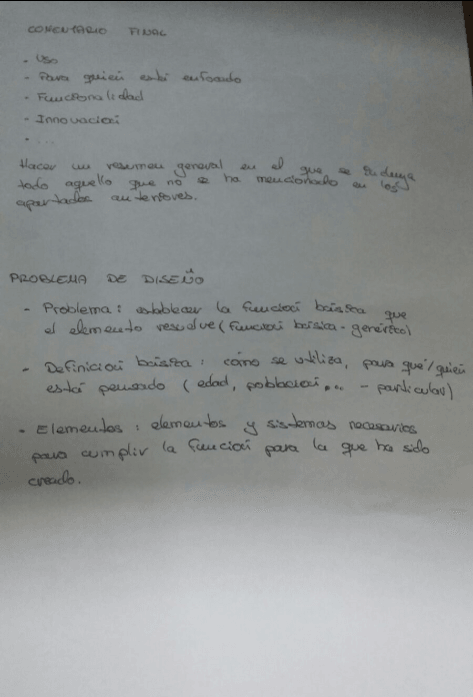 COMENTARIO FINAL
- Uso
- Para quién está enfocado
- Funcionalidad
- Innovación
- ...
Hacer un resumen general en el que se incluya
todo aquello que no se ha mencionado en los
apartados anteriores.
PROBLEMA DE DISEÑO
- Problema: establecer la función básica que
el elemento resuelve (función básica - genérico)
- Definición básica: cómo se utiliza, para qué/quién
está pensado (edad, población... - particular)
- Elementos: elementos y sistemas necesarios
para cumplir la función para la que ha sido
creado.